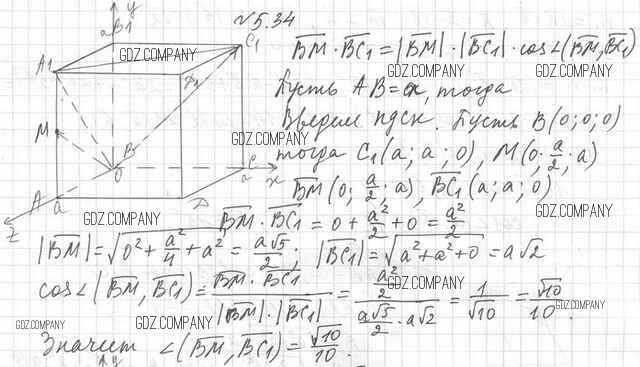 №5.34
y
aB1
C1
A1
D1
M
B
O
C
a
x
A
a
D
z
BM · BC1 = |BM| · |BC1| · cos∠(BM, BC1)
Пусть AB = a, тогда
Введем ПДСК. Пусть B(0; 0; 0)
тогда C1(a; a; 0), M(0; a/2; a)
BM(0; a/2; a), BC1(a; a; 0)
BM · BC1 = 0 + a²/2 + 0 = a²/2
|BM| = √(0² + a²/4 + a²) = a√5/2; |BC1| = √(a² + a² + 0) = a√2
cos∠|BM, BC1) = BM · BC1 / |BM| · |BC1| = a²/2 / a√5/2 · a√2 = 1/√10 = √10/10.
Значит ∠(BM, BC1) = √10/10.
y
GDZ.COMPANY
GDZ.COMPANY
GDZ.COMPANY
GDZ.COMPANY
GDZ.COMPANY
GDZ.COMPANY
GDZ.COMPANY
GDZ.COMPANY
GDZ.COMPANY
GDZ.COMPANY